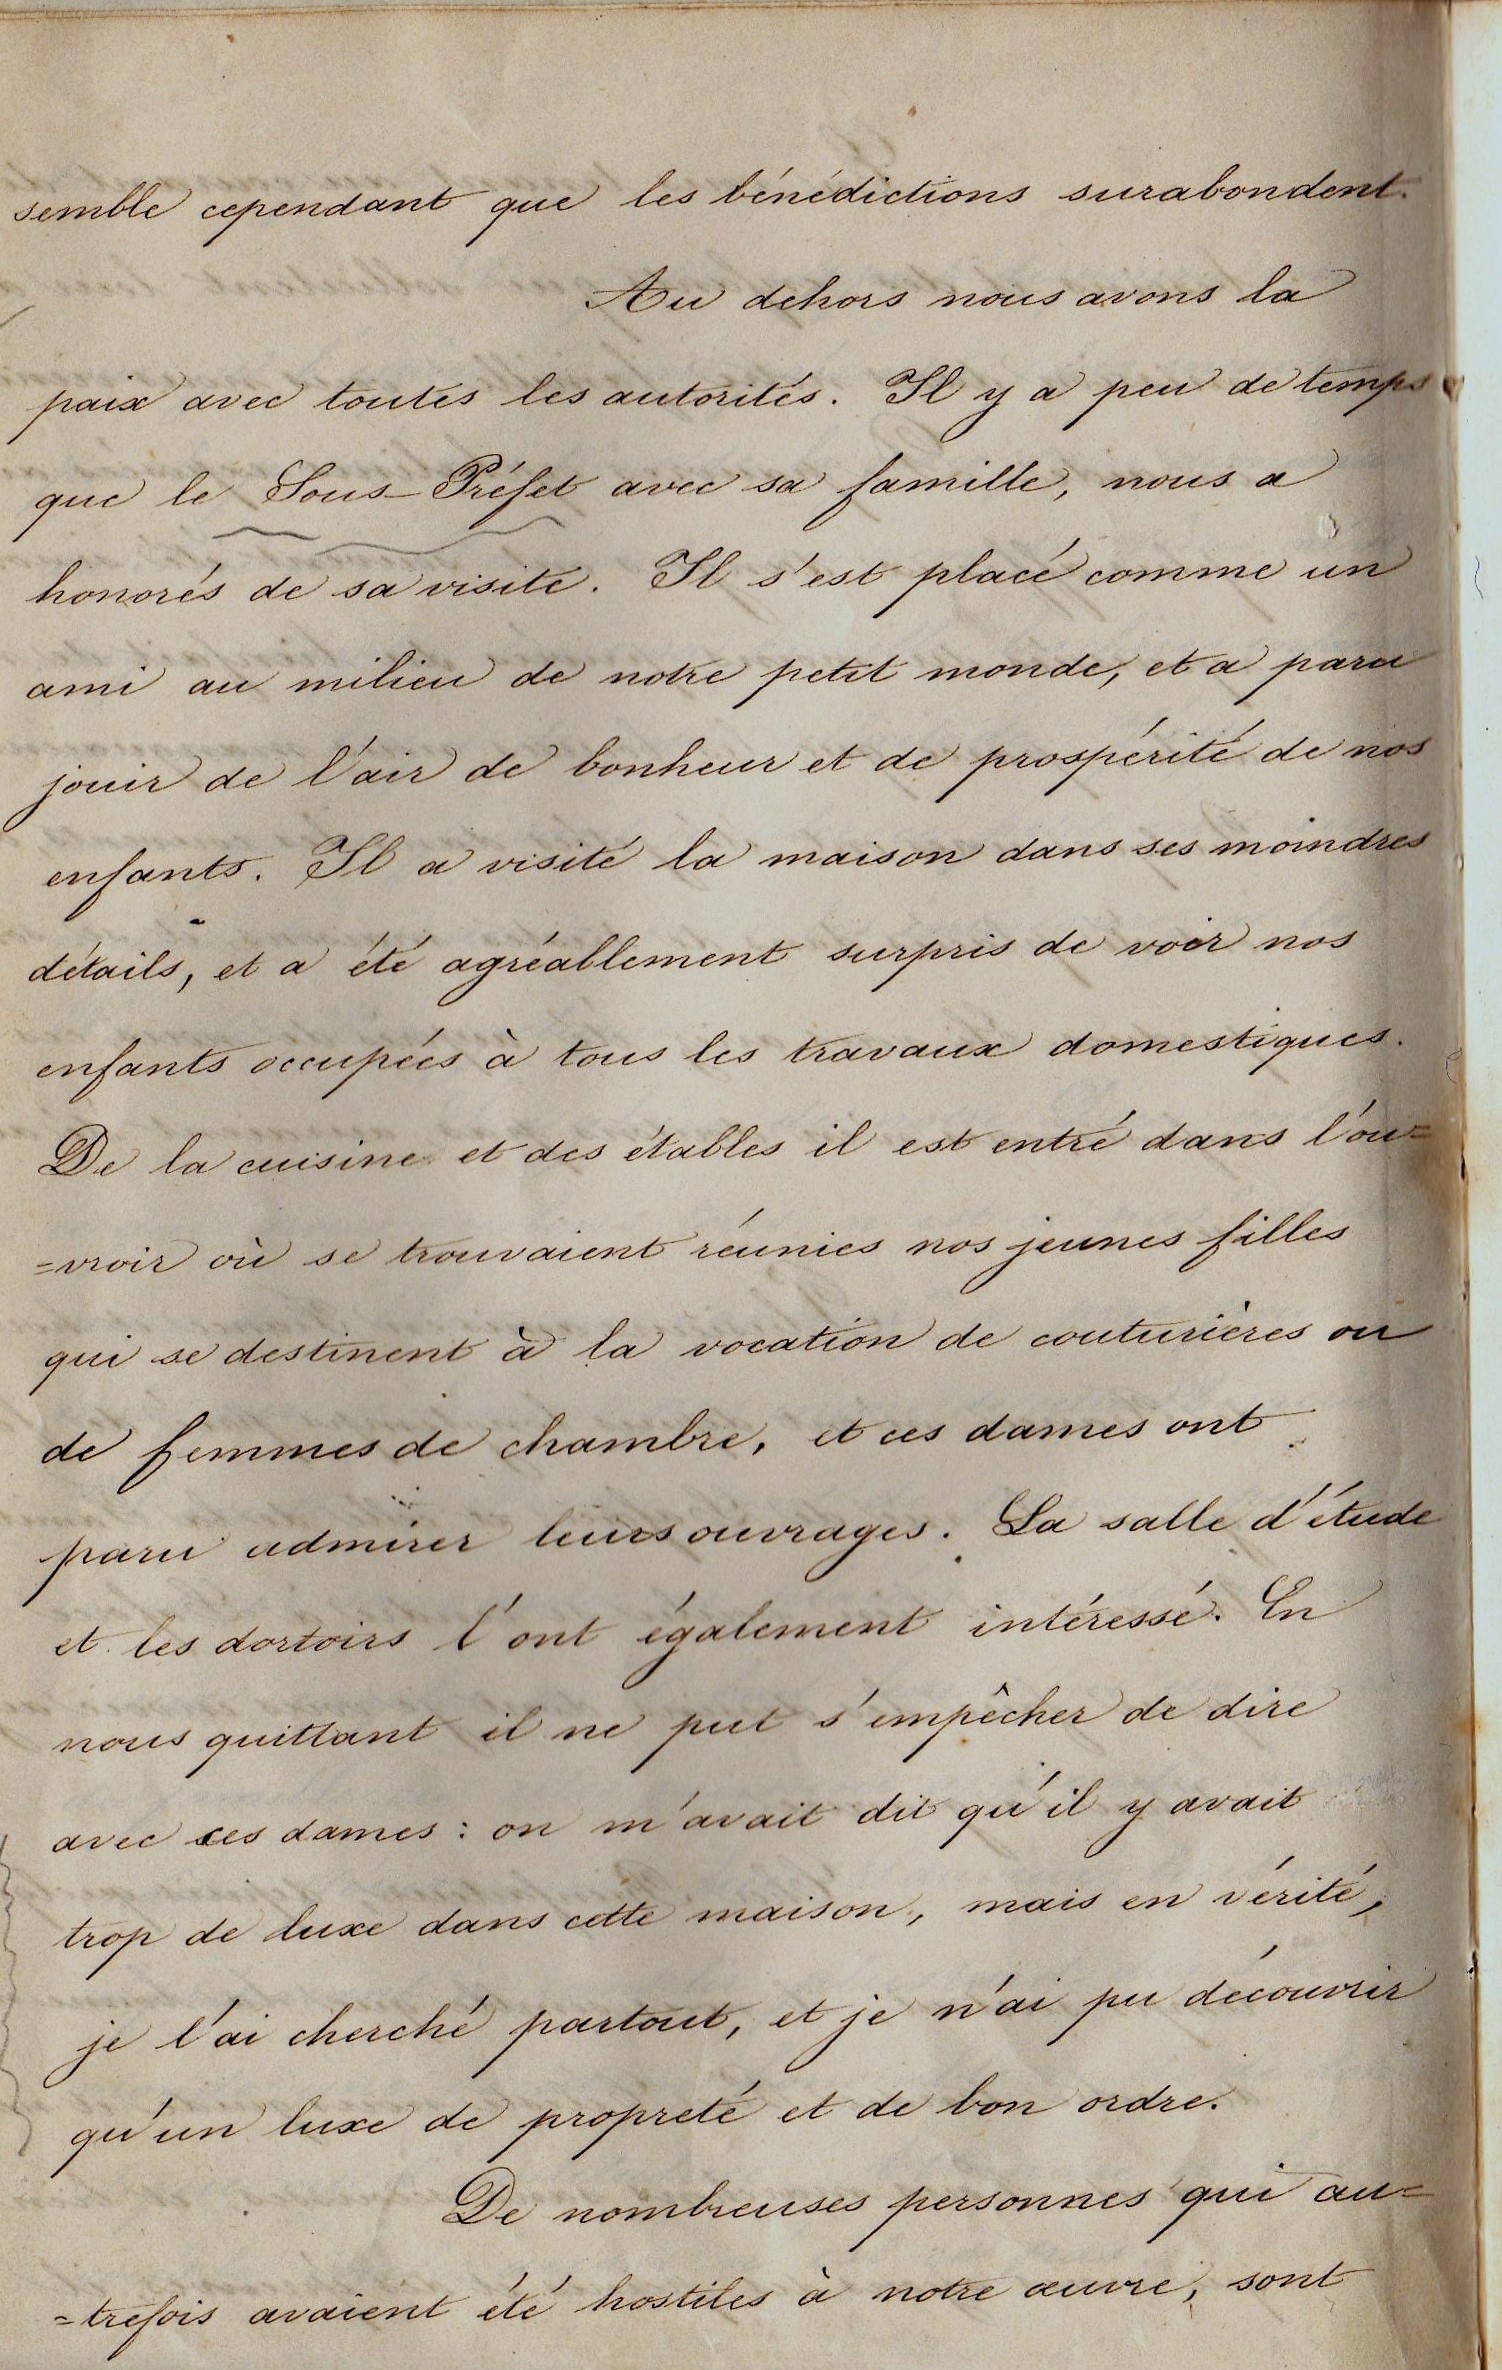 semble cependant que les bénédictions surabondent.
Au dehors nous avons la
paix avec toutes les autorités. Il y a peu de temps
que le Sous-Préfet avec sa famille, nous a
honorés de sa visite. Il s'est placé comme un
ami au milieu de notre petit monde, et a paru
jouir de l'air de bonheur et de prospérité de nos
enfants. Il a visité la maison dans ses moindres
détails, et a été agréablement surpris de voir nos
enfants occupées à tous les travaux domestiques.
De la cuisine et des étables il est entré dans l'ou=
=vroir où se trouvaient réunies nos jeunes filles
qui se destinent à la vocation de couturières ou
de femmes de chambre, et ces dames ont
paru admirer leurs ouvrages. La salle d'étude
et les dortoirs l'ont également intéressé. En
nous quittant il ne put s'empêcher de dire
avec ces dames : on m'avait dit qu'il y avait
trop de luxe dans cette maison, mais en vérité,
je l'ai cherché partout, et je n'ai pu découvrir
qu'un luxe de propreté et de bon ordre.
De nombreuses personnes qui au=
=trefois avaient été hostiles à notre œuvre, sont